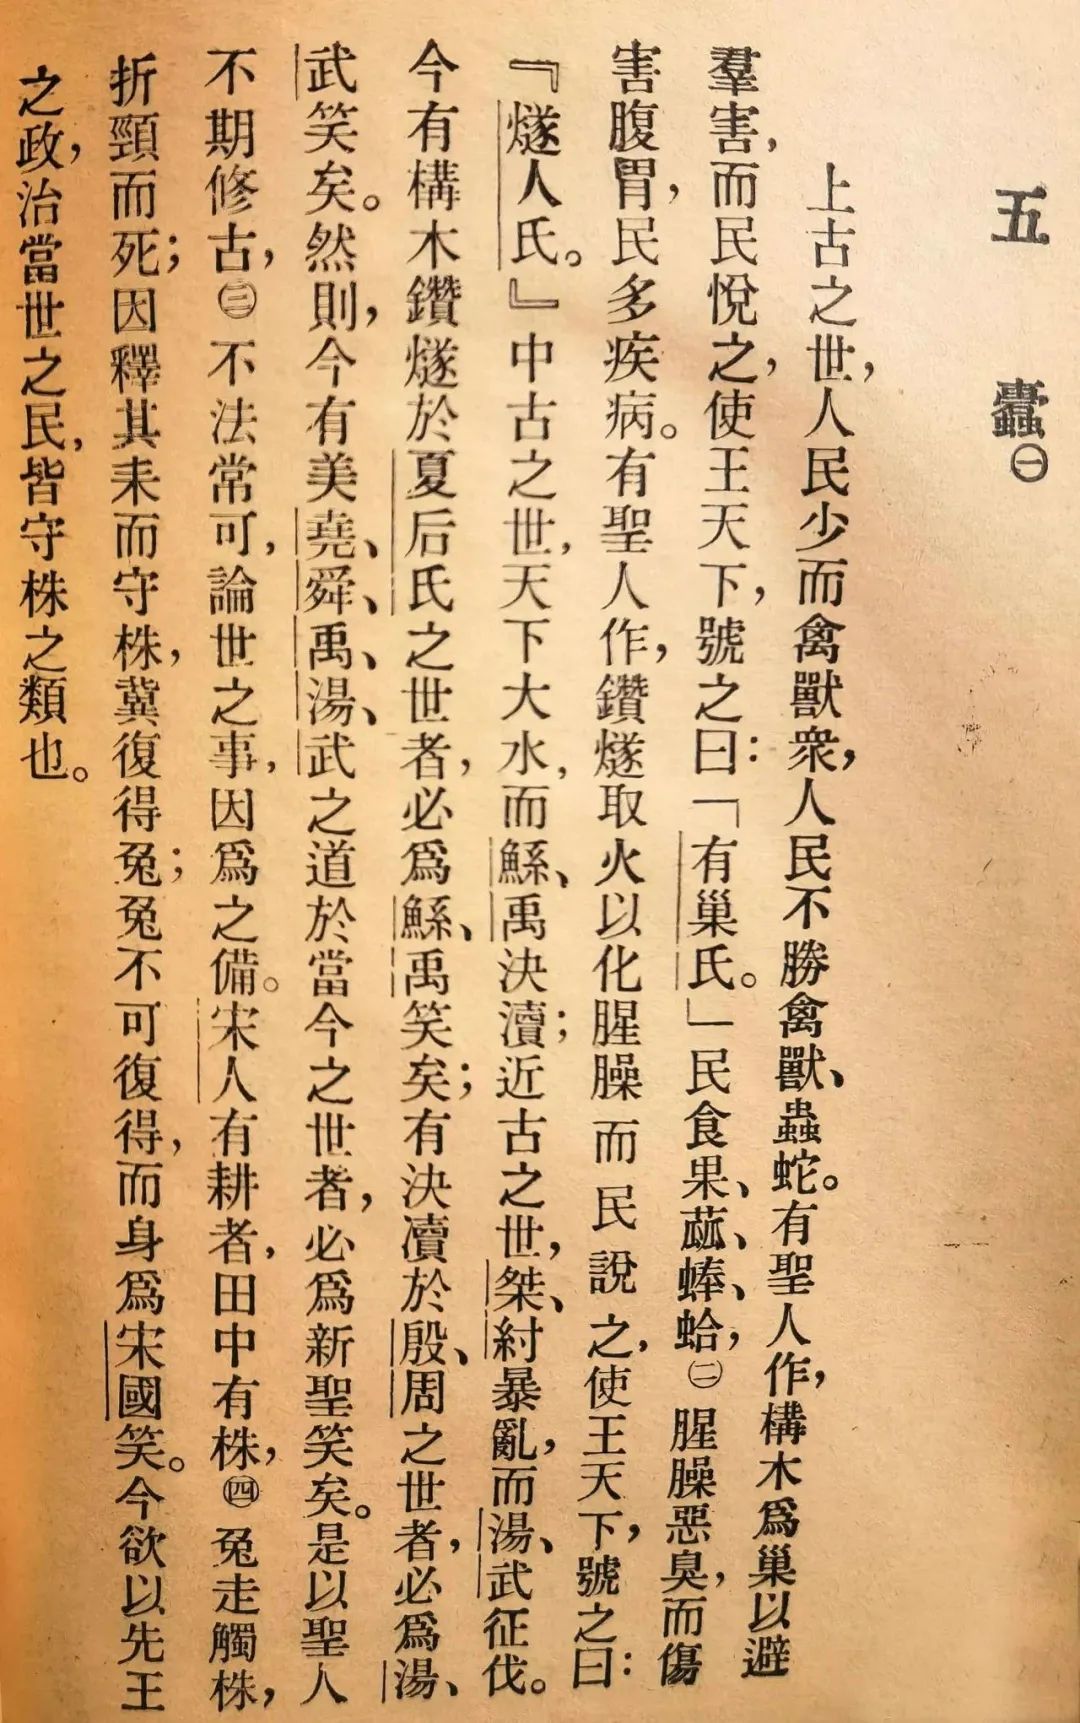 五蠹㊀
上古之世，人民少而禽獸衆，人民不勝禽獸、蟲蛇。有聖人作，構木爲巢以避
羣害，而民悅之，使王天下，號之曰：「有巢氏。」民食果、蓏、蜯、蛤，㊁腥臊惡臭，而傷
害腹胃，民多疾病。有聖人作，鑽燧取火以化腥臊而民說之，使王天下，號之曰：
『燧人氏。』中古之世，天下大水，而鯀、禹決瀆；近古之世，桀、紂暴亂，而湯、武征伐。
今有構木鑽燧於夏后氏之世者，必爲鯀、禹笑矣；有決瀆於殷、周之世者，必爲湯、
武笑矣。然則，今有美堯、舜、禹、湯、武之道於當今之世者，必爲新聖笑矣。是以聖人
不期修古，㊂不法常可，論世之事，因爲之備。宋人有耕者，田中有株，㊃兔走觸株，
折頸而死；因釋其耒而守株，冀復得兔；兔不可復得，而身爲宋國笑。今欲以先王
之政，治當世之民，皆守株之類也。